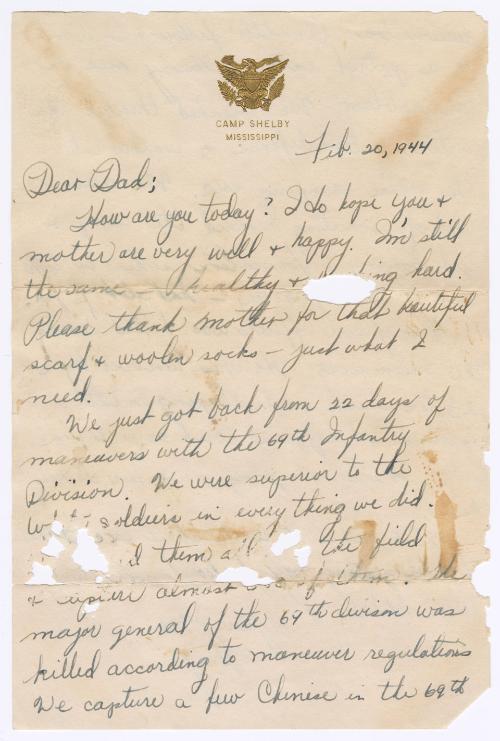 CAMP SHELBY
MISSISSIPPI
Feb. 20, 1944
Dear Dad;
How are you today? I do hope you +
mother are very well + happy. I'm still
the same - healthy + hard.
Please thank mother for that beautiful
scarf + woolen socks - just what I
need.
We just got back from 22 days of
maneuvers with the 69th Infantry
Division. We were superior to the
soldiers in everything we did.
them the field
+ almost of them. The
major general of the 69th divison was
killed according to maneuver regulations
We capture a few Chinese in the 69th